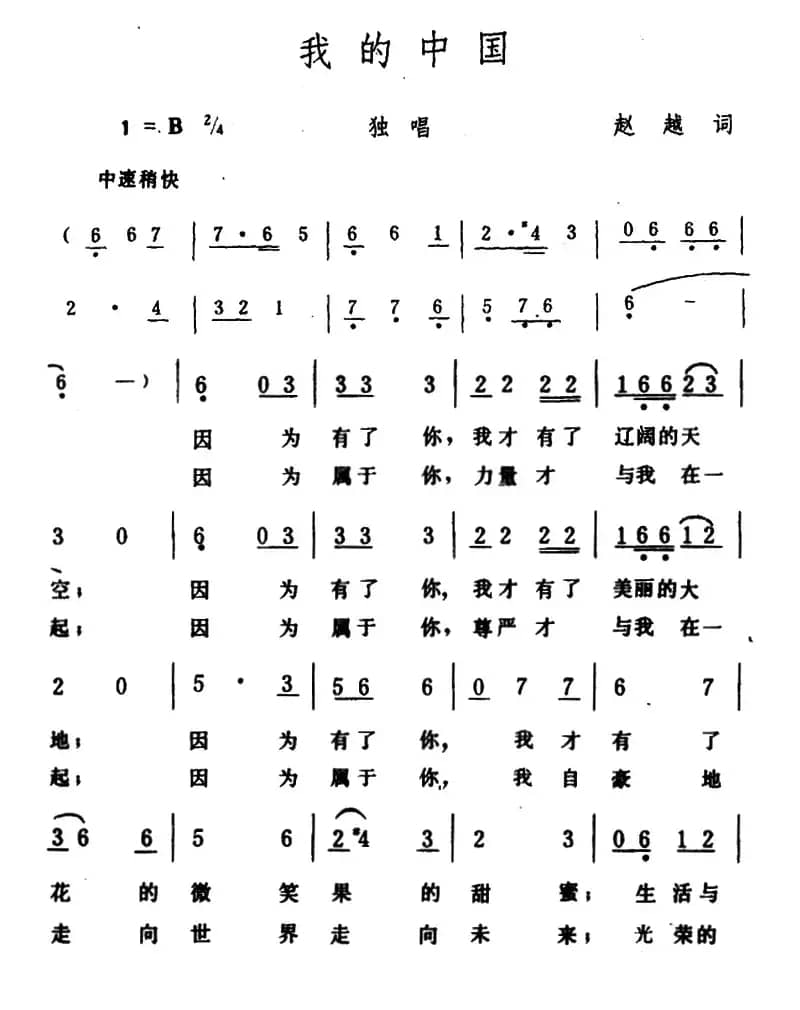 我的中国
1=B 2/4 独唱 赵越词
中速稍快
( 6 6 7 | 7 · 6 5 | 6 6 1 | 2 · #4 3 | 0 6 6 6 |
2 · 4 | 3 2 1 | 7 7 6 | 5 7 6 | 6 - |
6 — ) | 6 0 3 | 3 3 3 | 2 2 2 2 | 1 6 6 2 3 |
因为有了你，我才有了辽阔的天
因为属于你，力量才与我在一
3 0 | 6 0 3 | 3 3 3 | 2 2 2 2 | 1 6 6 1 2 |
空；因为有了你，我才有了美丽的大
起；因为属于你，尊严才与我在一
2 0 | 5 · 3 | 5 6 6 | 0 7 7 | 6 7 |
地；因为有了你，我才有了
起；因为属于你，我自豪地
3 6 6 | 5 6 | 2 #4 3 | 2 3 | 0 6 1 2 |
花的微笑果的甜蜜；生活与
走向世界走向未来；光荣的